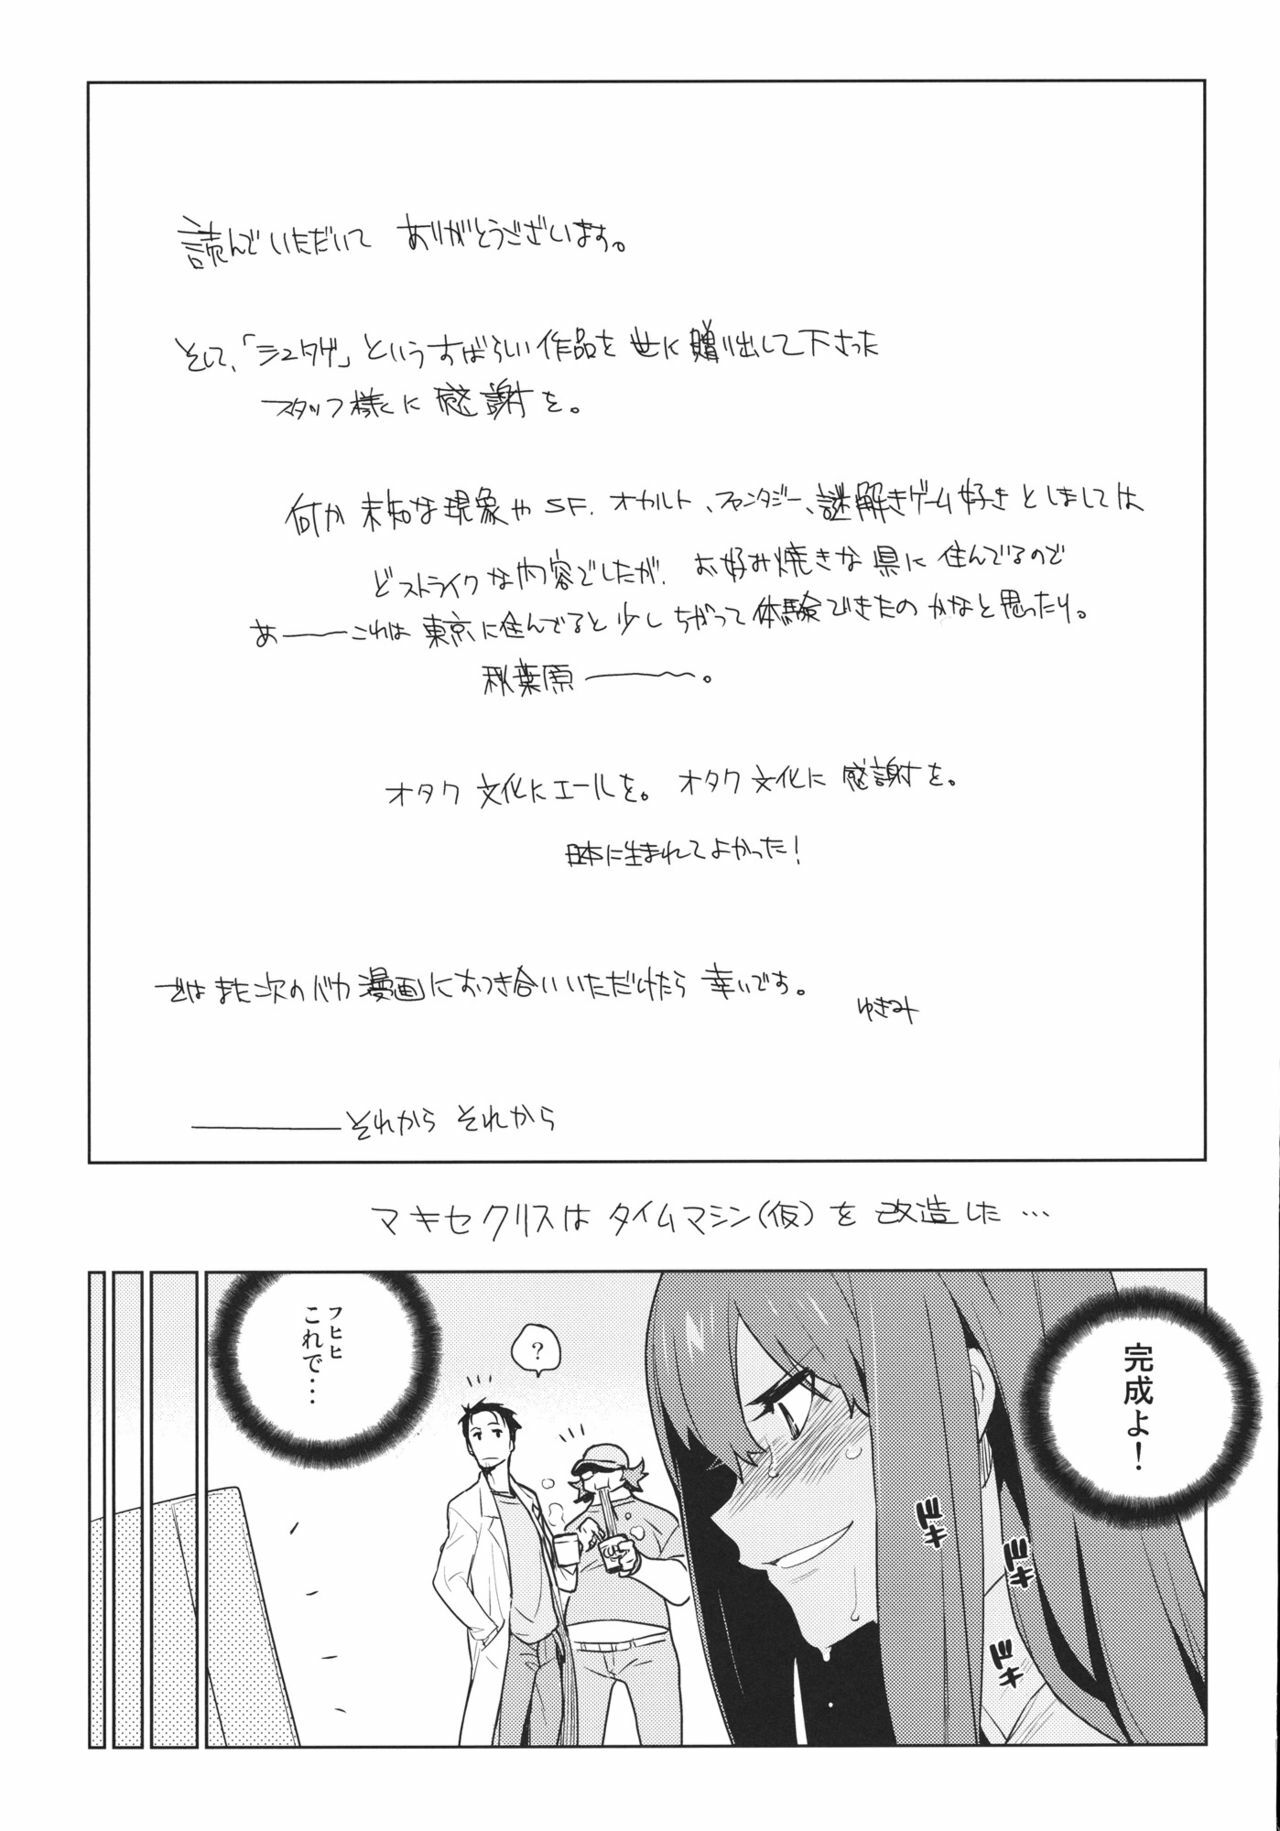 読んでいただいて ありがとうございます。
そして、「シュタゲ」というすばらしい作品を世に贈り出して下さった
スタッフ様くに感謝を。
何か未知な現象やSF.オカルト、ファンタジー、謎解きゲーム好きとしましては
どストライクな内容でしたが、お好み焼きな県に住んでるので
あ———これは東京に住んでると少しちがって体験できたのかなと思ったり。
秋葉原———〜。
オタク文化にエールを。オタク文化に感謝を。
日本に生まれてよかった！
ではまた次のバカ漫画におつき合いいただけたら幸いです。
ゆきみ
————それから それから
マキセクリスは タイムマシン(仮)を改造した…
完成よ！
?
フヒヒ
これで・・・
ドキ
ドキ
ドキ